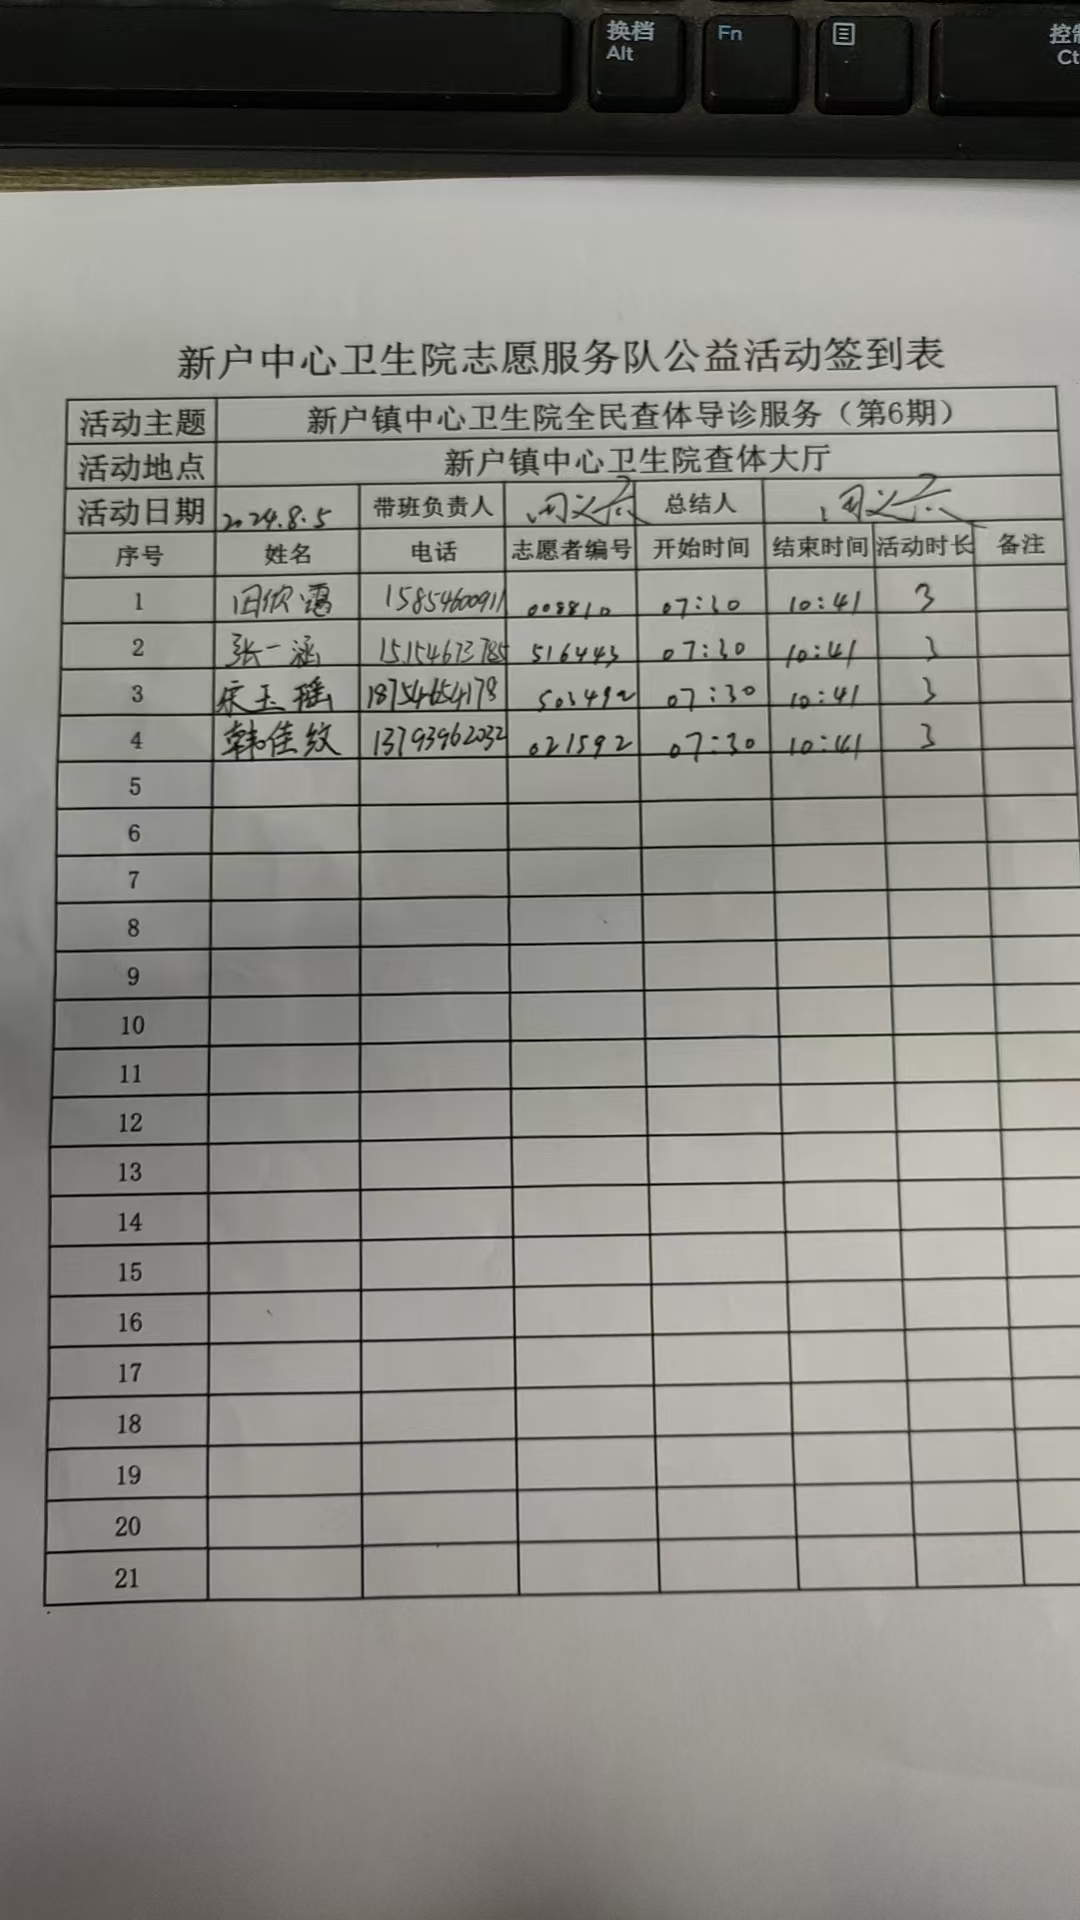 换档
Alt
Fn
控制
Ct
新户中心卫生院志愿服务队公益活动签到表
活动主题 新户镇中心卫生院全民查体导诊服务（第6期）
活动地点 新户镇中心卫生院查体大厅
活动日期 2024.8.5 带班负责人 总结人
序号 姓名 电话 志愿者编号 开始时间 结束时间 活动时长 备注
1 田欣露 15854600911 008810 07:30 10:41 3
2 张一涵 15154673785 516443 07:30 10:41 3
3 宋玉瑶 18754654178 503492 07:30 10:41 3
4 韩佳纹 13793962032 021592 07:30 10:41 3
5
6
7
8
9
10
11
12
13
14
15
16
17
18
19
20
21